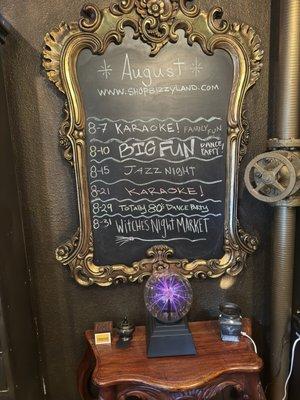 * August *
www.SHOPBIZZYLAND.COM
8-7 KARAOKE! FAMILY FUN
8-10 BIG FUN DANCE PARTY!
8-15 JAZZ NIGHT
8-21 KARAOKE!
8-29 TOTALLY 80's DANCE PARTY
8-31 WITCHES NIGHT MARKET